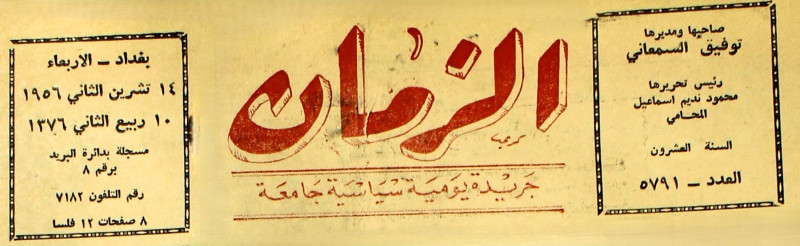 صاحبها ومديرها
توفيق السمعاني
رئيس تحريرها
محمود نديم اسماعيل
المحامي
السنة العشرون
العدد ــ ٥٧٩١
الزمان
جريدة يومية سياسية جامعة
بغداد ــ الاربعاء
١٤ تشرين الثاني ١٩٥٦
١٠ ربيع الثاني ١٣٧٦
مسجلة بدائرة البريد
برقم ٨
رقم التلفون ٧١٨٢
٨ صفحات ١٢ فلسا